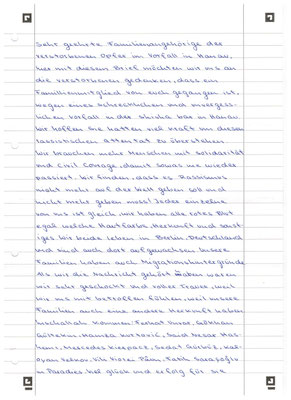 Sehr geehrte Familienangehörige der
verstorbenen Opfer im Vorfall in Hanau,
hier mit diesem Brief möchten wir uns an
die verstorbenen gedenken, dass ein
Familienmitglied von euch gegangen ist,
wegen eines schrecklichen und unverges-
lichen Vorfall in der Shisha bar in Hanau.
Wir hoffen Sie hatten viel Kraft um diesen
rassistischen Attentat zu überstehen
Wir brauchen mehr Menschen mit Solidarität
und Civil Corage, damit sowas nie wieder
passiert. Wir finden, dass es Rassismus
nicht mehr auf der Welt geben soll und
auch nicht geben muss! Jeder einzelne
von uns ist gleich, wir haben alle rotes Blut
egal welche Hautfarbe, Herkunft und sons-
tiges. Wir beide leben in Berlin, Deutschland
und sind auch dort aufgewachsen. Unsere
Familien haben auch Migrationshintergründe
Als wir die Nachricht gehört haben waren
wir sehr geschockt und voller Trauer, weil
wir uns mit betroffen fühlten, weil unsere
Familien auch eine andere Herkunft haben
Inschallah kommen: Ferhat Unvar, Gökhan
Gültekin, Hamza Kurtović, Said Nesar Has-
hemi, Mercedes Kierpacz, Sedat Gürbüz, Kal-
oyan Velkov, Vili Viorel Păun, Fatih Saraçoğlu
in Paradies. Viel glück und erfolg für sie